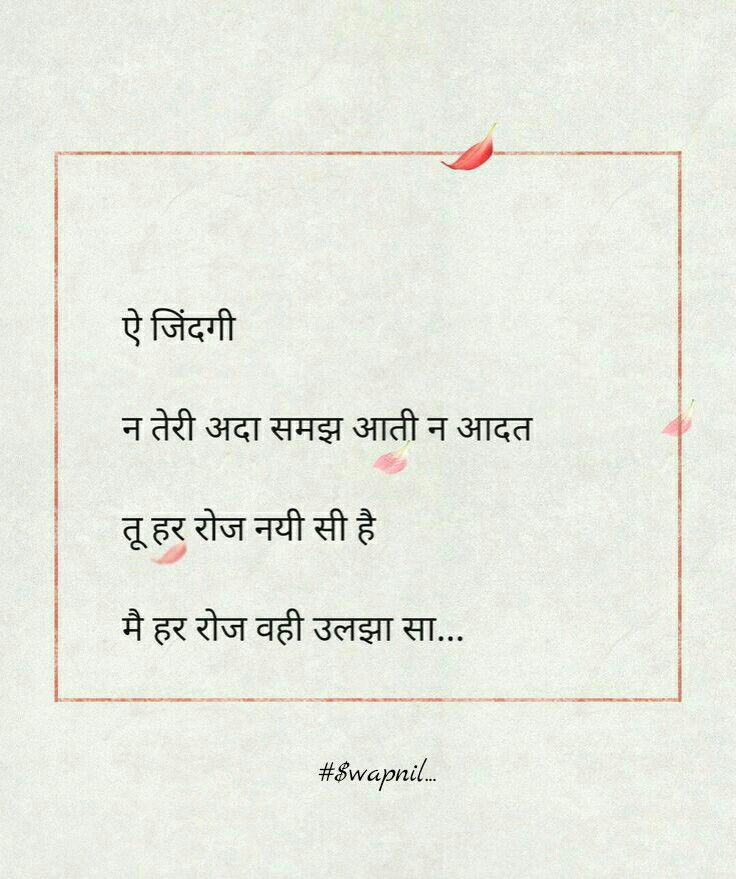 ऐ जिंदगी
न तेरी अदा समझ आती न आदत
तू हर रोज नयी सी है
मै हर रोज वही उलझा सा...
#$wapnil...